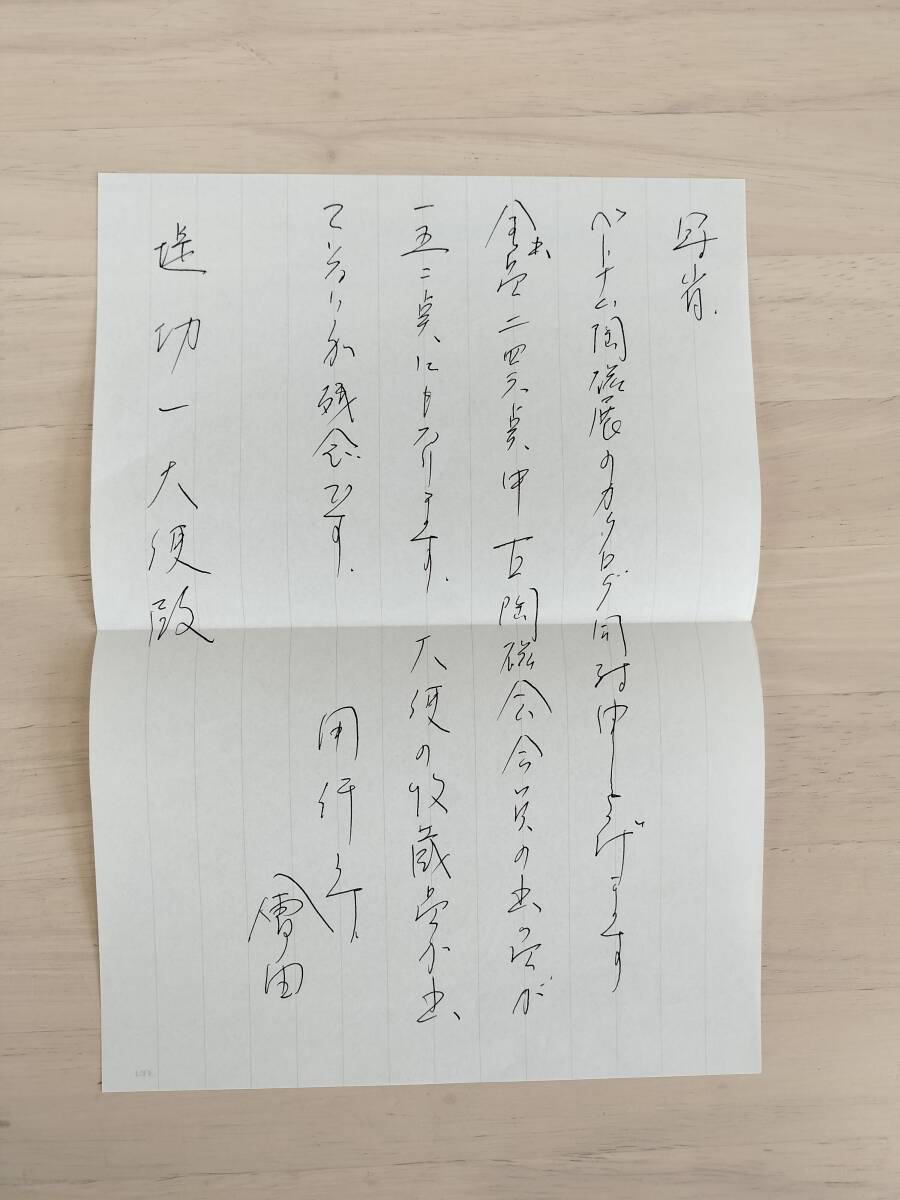 冠省.
ベトナム陶磁展のカタログ同封申し上げます
全出品二四六点中 古陶磁会会員の出品が
一五二点にもなります. 大使の収蔵品が出
残念です.
用件
會田
堤功一大使殿